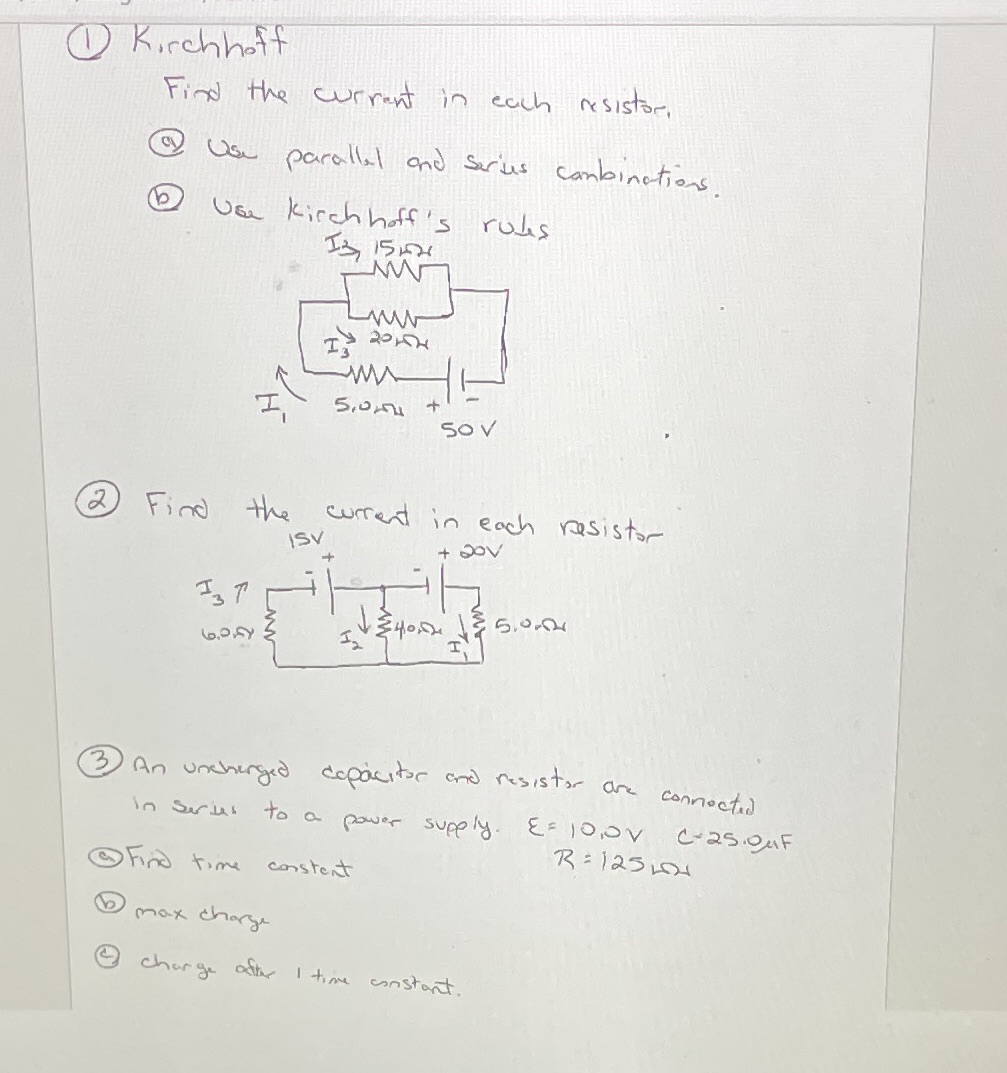 ① Kirchhoff
Find the current in each resistor.
ⓐ Use parallel and series combinations.
ⓑ Use Kirchhoff's rules
I₂ 15Ω
I₃ 20Ω
I₁ 5.0Ω + -
50V
② Find the current in each resistor
15V
- + - + 20V
I₃
6.0Ω I₂ 40Ω I₁ 5.0Ω
③ An uncharged capacitor and resistor are connected
in series to a power supply. Ɛ = 10.0V C=25.0μF
ⓐ Find time constant R = 125Ω
ⓑ max charge
ⓒ charge after 1 time constant.